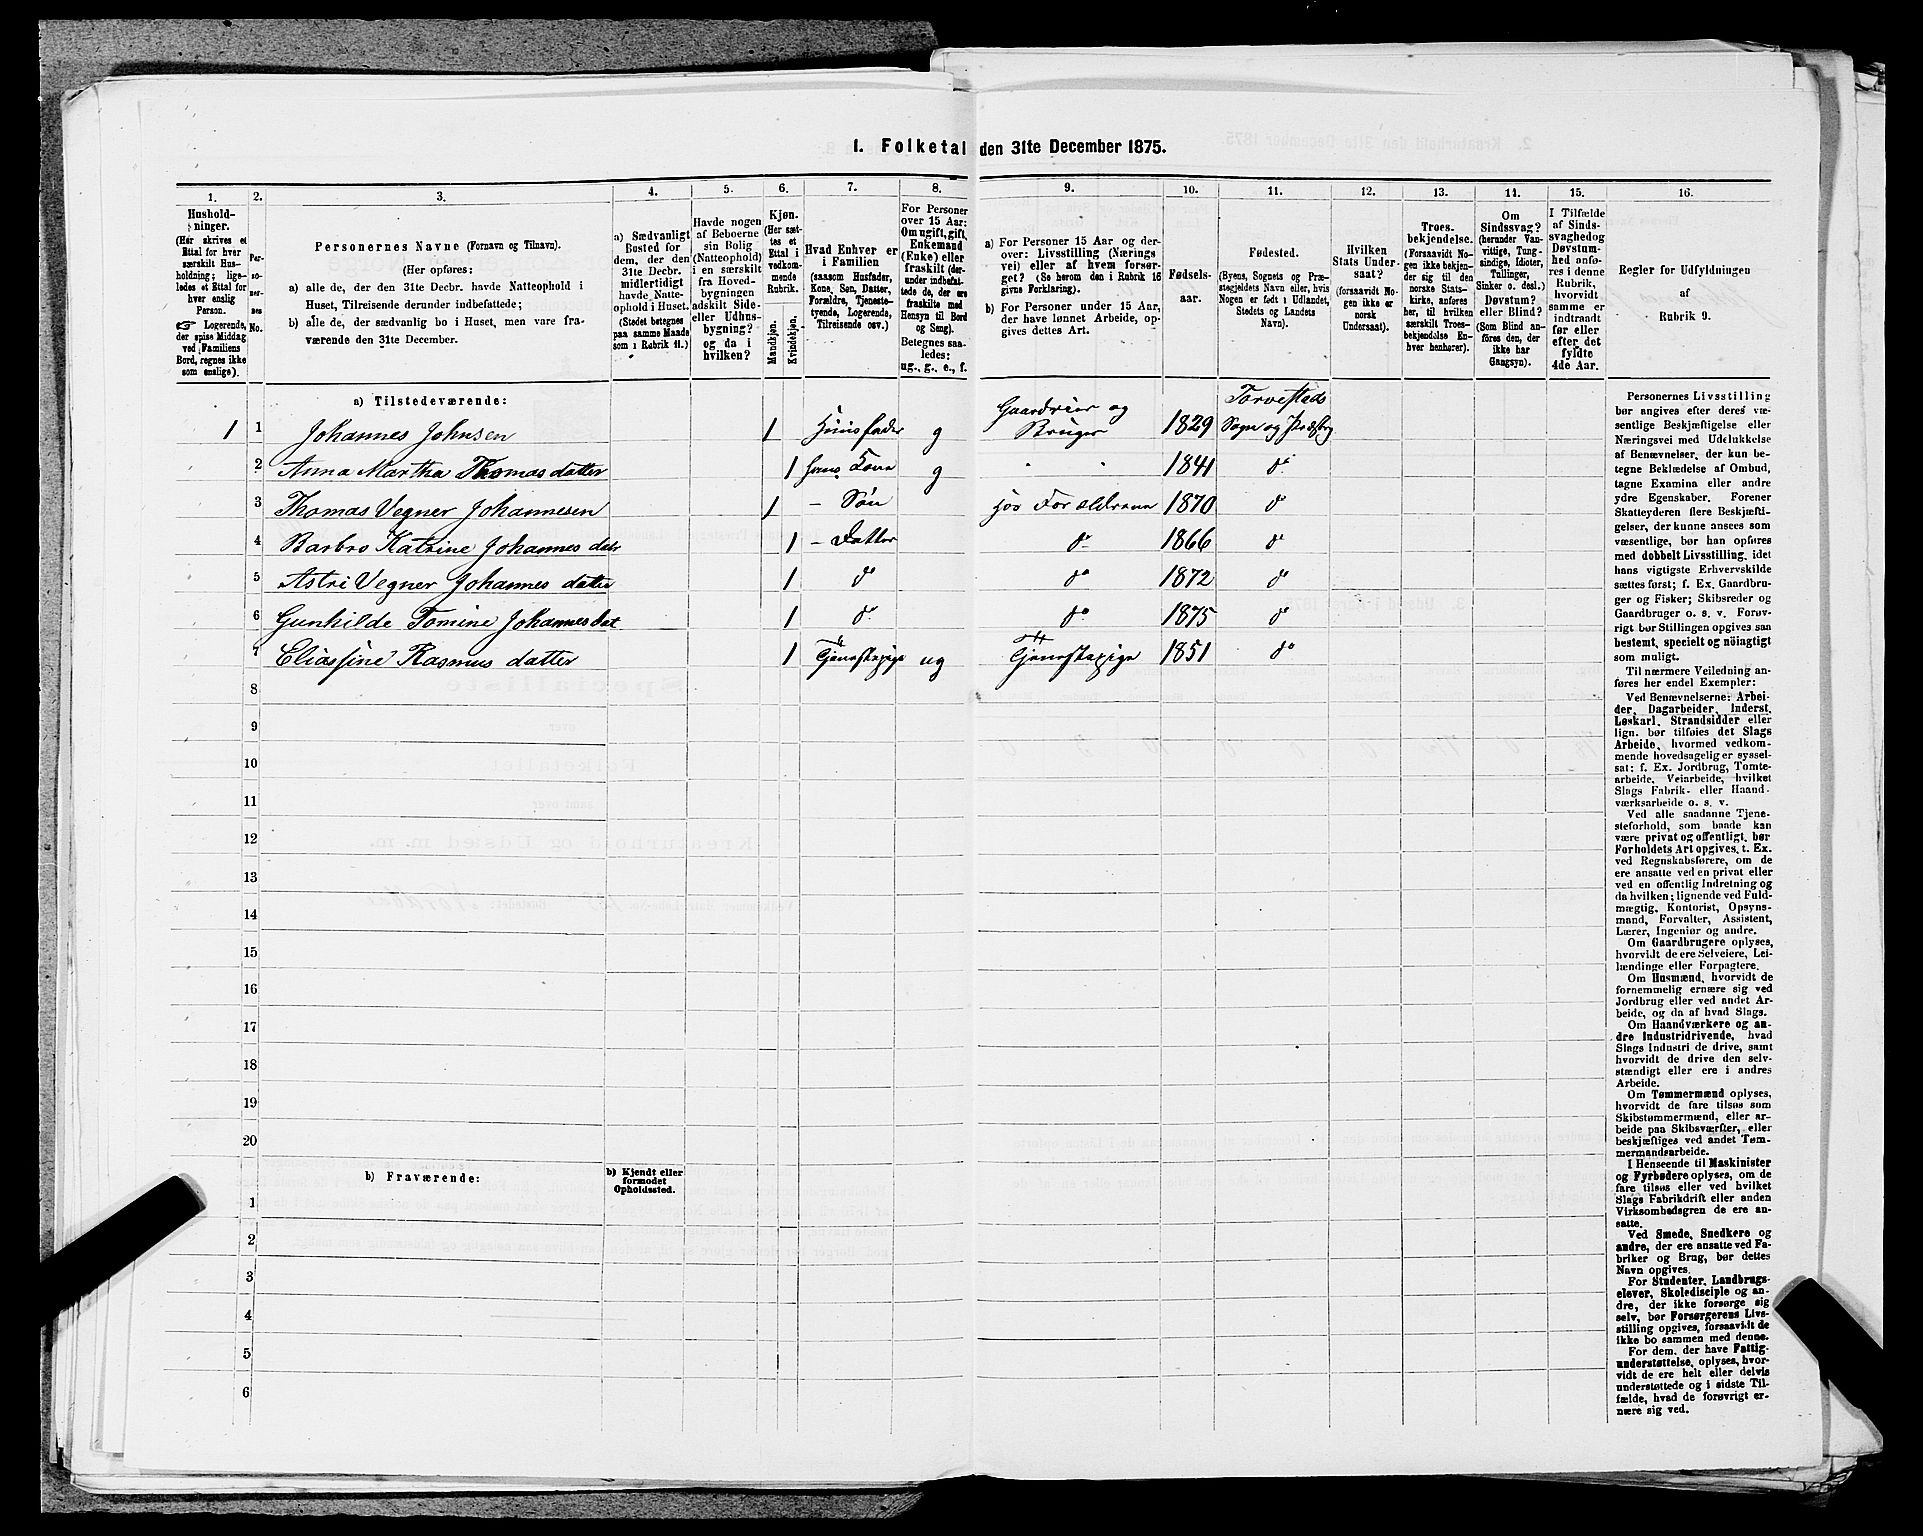 1. Folketal den 31te December 1875.
1. 2. 3. 4. 5. 6. 7. 8. 9. 10. 11. 12. 13. 14. 15. 16.
Hushold-
ninger.
(Her skrives et
Ettal for hver
særskilt Hus-
holdning; lige-
ledes et Ettal for
hver enslig
Person.
☞ Logerende,
der spise Middag
ved Familiens
Bord, regnes ikke
som enslige).
Per-
so-
ner-
nes
No.
Personernes Navne (Fornavn og Tilnavn).
(Her opføres:
a) alle de, der den 31te Decbr. havde Natteophold i
Huset, Tilreisende derunder indbefattede;
b) alle de, der sædvanlig bo i Huset, men vare fra-
værende den 31te December.
a) Sædvanligt
Bosted for
dem, der den
31te Decbr.
midlertidigt
havde Natte-
ophold i Huset.
(Stedet betegnes
paa samme Maade
som i Rubrik 11.)
Havde nogen
af Beboerne
sin Bolig
(Natteophold)
i en særskilt
fra Hoved-
bygningen
adskilt Side-
eller Udhus-
bygning?
og da i
hvilken?
Kjøn.
(Her sæt-
tes et
Ettal i
vedkom-
mende
Rubrik.
Mandkjøn.
Kvindekjøn.
Hvad Enhver er
i Familien
(saasom Husfader,
Kone, Søn, Datter,
Forældre, Tjeneste-
tyende, Logerende,
Tilreisende osv.)
For Personer
over 15 Aar:
Om ugift, gift,
Enkemand
(Enke) eller
fraskilt (der-
under indbefat-
tede de, der ere
fraskilte med
Hensyn til Bord
og Seng).
Betegnes saa-
ledes:
ug., g., e., f.
a) For Personer 15 Aar og der-
over: Livsstilling (Nærings
vei) eller af hvem forsør-
get? (Se herom den i Rubrik 16
givne Forklaring).
b) For Personer under 15 Aar,
der have lønnet Arbeide, op-
gives dettes Art.
Fødsels-
aar.
Fødested.
(Byens, Sognets og Præ-
stegjeldets Navn eller, hvis
Nogen er født i Udlandet,
Stedets og Landets
Navn).
Hvilken
Stats Under-
saat?
(forsaavidt No-
gen ikke er
norsk
Undersaat).
Troes-
bekjendelse.
(Forsaavidt No-
gen ikke bekjen-
der sig til den
norske Stats-
kirke, anføres
her, til hvilken
særskilt Troes-
bekjendelse En-
hver henhører).
Om
Sindssvag?
(herunder Van-
vittige, Tung-
sindige, Idioter,
Tullinger,
Sinker o. desl.)
Døvstum?
eller Blind?
(Som Blind an-
føres den, der
ikke har
Gangsyn).
I Tilfælde
af Sinds-
svaghed og
Døvstum-
hed anfø-
res i denne
Rubrik,
hvorvidt
samme er
indtraadt
før eller
efter det
fyldte
4de Aar.
Regler for Udfyldningen
af
Rubrik 9.
a) Tilstedeværende:
1 1 Johannes Johnsen 1 Huusfader g Gaardeier og Bruger 1829 Torvestads Sogn og Præstg
2 Anna Martha Thomasdatter 1 hans Kone g " " 1841 do
3 Thomas Vegner Johannesen 1 - Søn hos Forældrene 1870 do
4 Barbro Katrine Johannes datr 1 - Datter do 1866 do
5 Astri Vegner Johannes datter 1 do do 1872 do
6 Gunhilde Tomine Johannesdat 1 do do 1875 do
7 Eliassine Rasmus datter 1 Tjenestepige ug Tjenestepige 1851 do
8
9
10
11
12
13
14
15
16
17
18
19
20
b) Fraværende:
b) Kjendt eller
formodet
Opholdssted.
1
2
3
4
5
6
Personernes Livsstilling
bør angives efter deres væ-
sentlige Beskjæftigelse eller
Næringsvei med Udelukkelse
af Benævnelser, der kun be-
tegne Beklædelse af Ombud,
tagne Examina eller andre
ydre Egenskaber. Forener
Skatteyderen flere Beskjæfti-
gelser, der kunne ansees som
væsentlige, bør han opføres
med dobbelt Livsstilling, idet
hans vigtigste Erhvervskilde
sættes først; f. Ex. Gaardbru-
ger og Fisker; Skibsreder og
Gaardbruger o. s. v. Forøv-
rigt bør Stillingen opgives saa
bestemt, specielt og nöiagtigt
som muligt.
Til nærmere Veiledning an-
føres her endel Exempler:
Ved Benævnelserne: Arbei-
der, Dagarbeider, Inderst,
Løskarl, Strandsidder eller
lign. bør tilføies det Slags
Arbeide, hvormed vedkom-
mende hovedsagelig er syssel-
sat: f. Ex. Jordbrug, Tomte-
arbeide, Veiarbeide, hvilket
Slags Fabrik- eller Haand-
værksarbeide o. s. v.
Ved alle saadanne Tjene-
steforhold, som baade kan
være privat og offentligt, bør
Forholdets Art opgives, t. Ex.
ved Regnskabsførere, om de
ere ansatte ved en privat eller
ved en offentlig Indretning og
da hvilken; lignende ved Fuld-
mægtig, Kontorist, Opsyns-
mand, Forvalter, Assistent,
Lærer, Ingeniør og andre.
Om Gaardbrugere oplyses,
hvorvidt de ere Selveiere, Lei-
lændinge eller Forpagtere.
Om Husmænd, hvorvidt de
fornemmelig ernære sig ved
Jordbrug eller ved andet Ar-
beide, og da af hvad Slags.
Om Haandværkere og an-
dre Industridrivende, hvad
Slags Industri de drive, samt
hvorvidt de drive den selv-
stændigt eller ere i andres
Arbeide.
Om Tømmermænd oplyses,
hvorvidt de fare tilsøs som
Skibstømmermænd, eller ar-
beide paa Skibsværfter, eller
beskjæftiges ved andet Tøm-
mermandsarbeide.
I Henseende til Maskinister
og Fyrbødere oplyses, om de
fare tilsøs eller ved hvilket
Slags Fabrikdrift eller anden
Virksombedsgren de ere an-
satte.
Ved Smede, Snedkere og
andre, der ere ansatte ved Fa-
briker og Brug, bør dettes
Navn opgives.
For Studenter, Landbrugs-
elever, Skoledisciple og an-
dre, der ikke forsørge sig
selv, bør Forsørgerens Livs-
stilling opgives, forsaavidt de
ikke bo sammen med denne.
For dem, der have Fattig-
understøttelse, oplyses, hvor-
vidt de ere helt eller delvis
understøttede og i sidste Til-
fælde, hvad de forøvrigt er-
nære sig ved.